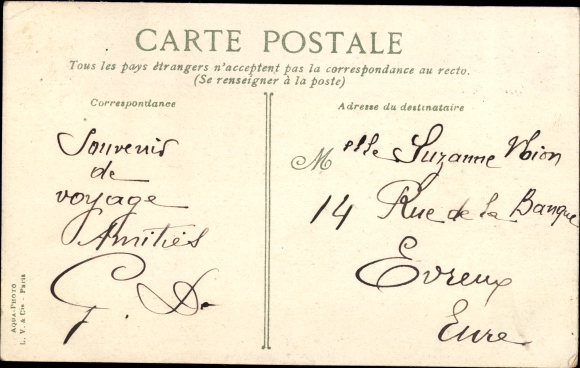 CARTE POSTALE
Tous les pays étrangers n'acceptent pas la correspondance au recto.
(Se renseigner à la poste)
Correspondance
Souvenir
de
voyage
Amitiés
G. D.
Adresse du destinataire
Melle Suzanne Noion
14 Rue de la Banque
Evreux
Eure
AQUA-PHOTO
L. V. & Cie - Paris